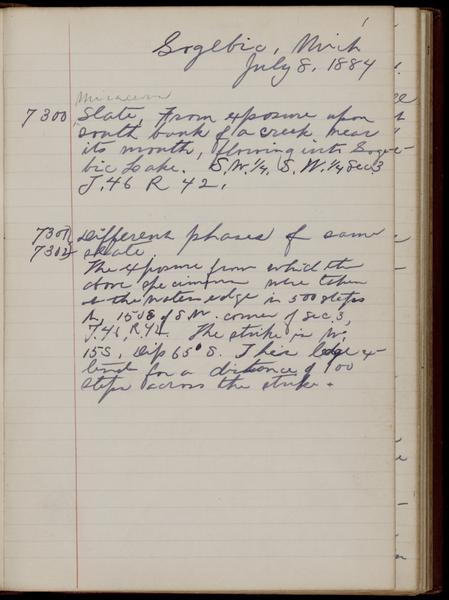 1
Gogebic, Mich
July 8, 1884
7300 Slate, From exposure upon
south bank of a creek near
its mouth, flowing into Goge-
bic Lake. S.W.¼, S.W.¼ Sec3
T.46 R 42,
7301 Different phases of same
7302 slate
The exposure from which the
above specimens were taken
is the waters edge in 500 steps
N, 1508 of S.W. corner of Sec.3,
T.46, R.42. The strike is N,
15S, Dip 65° S. This ledge ex-
tends for a distance of 100
steps across the strike.